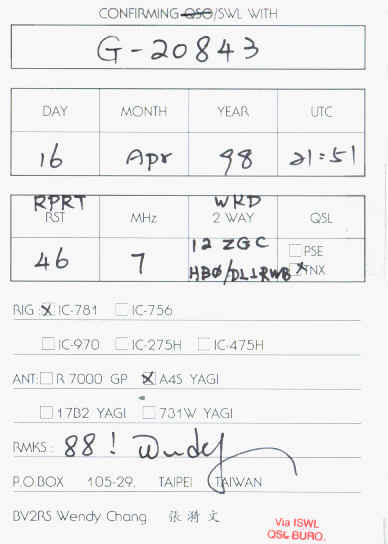 CONFIRMING QSO/SWL WITH
G-20843
DAY MONTH YEAR UTC
16 Apr 98 21:51
RPRT WKD
RST MHz 2 WAY QSL
46 7 12 ZGC PSE
HBØ/DL1RWB TNX
RIG: IC-781 IC-756
IC-970 IC-275H IC-475H
ANT: R 7000 GP A4S YAGI
17B2 YAGI 731W YAGI
RMKS: 88! Wendy
P.O.BOX 105-29, TAIPEI TAIWAN
BV2RS Wendy Chang 張 文
Via ISWL
QSL BURO.